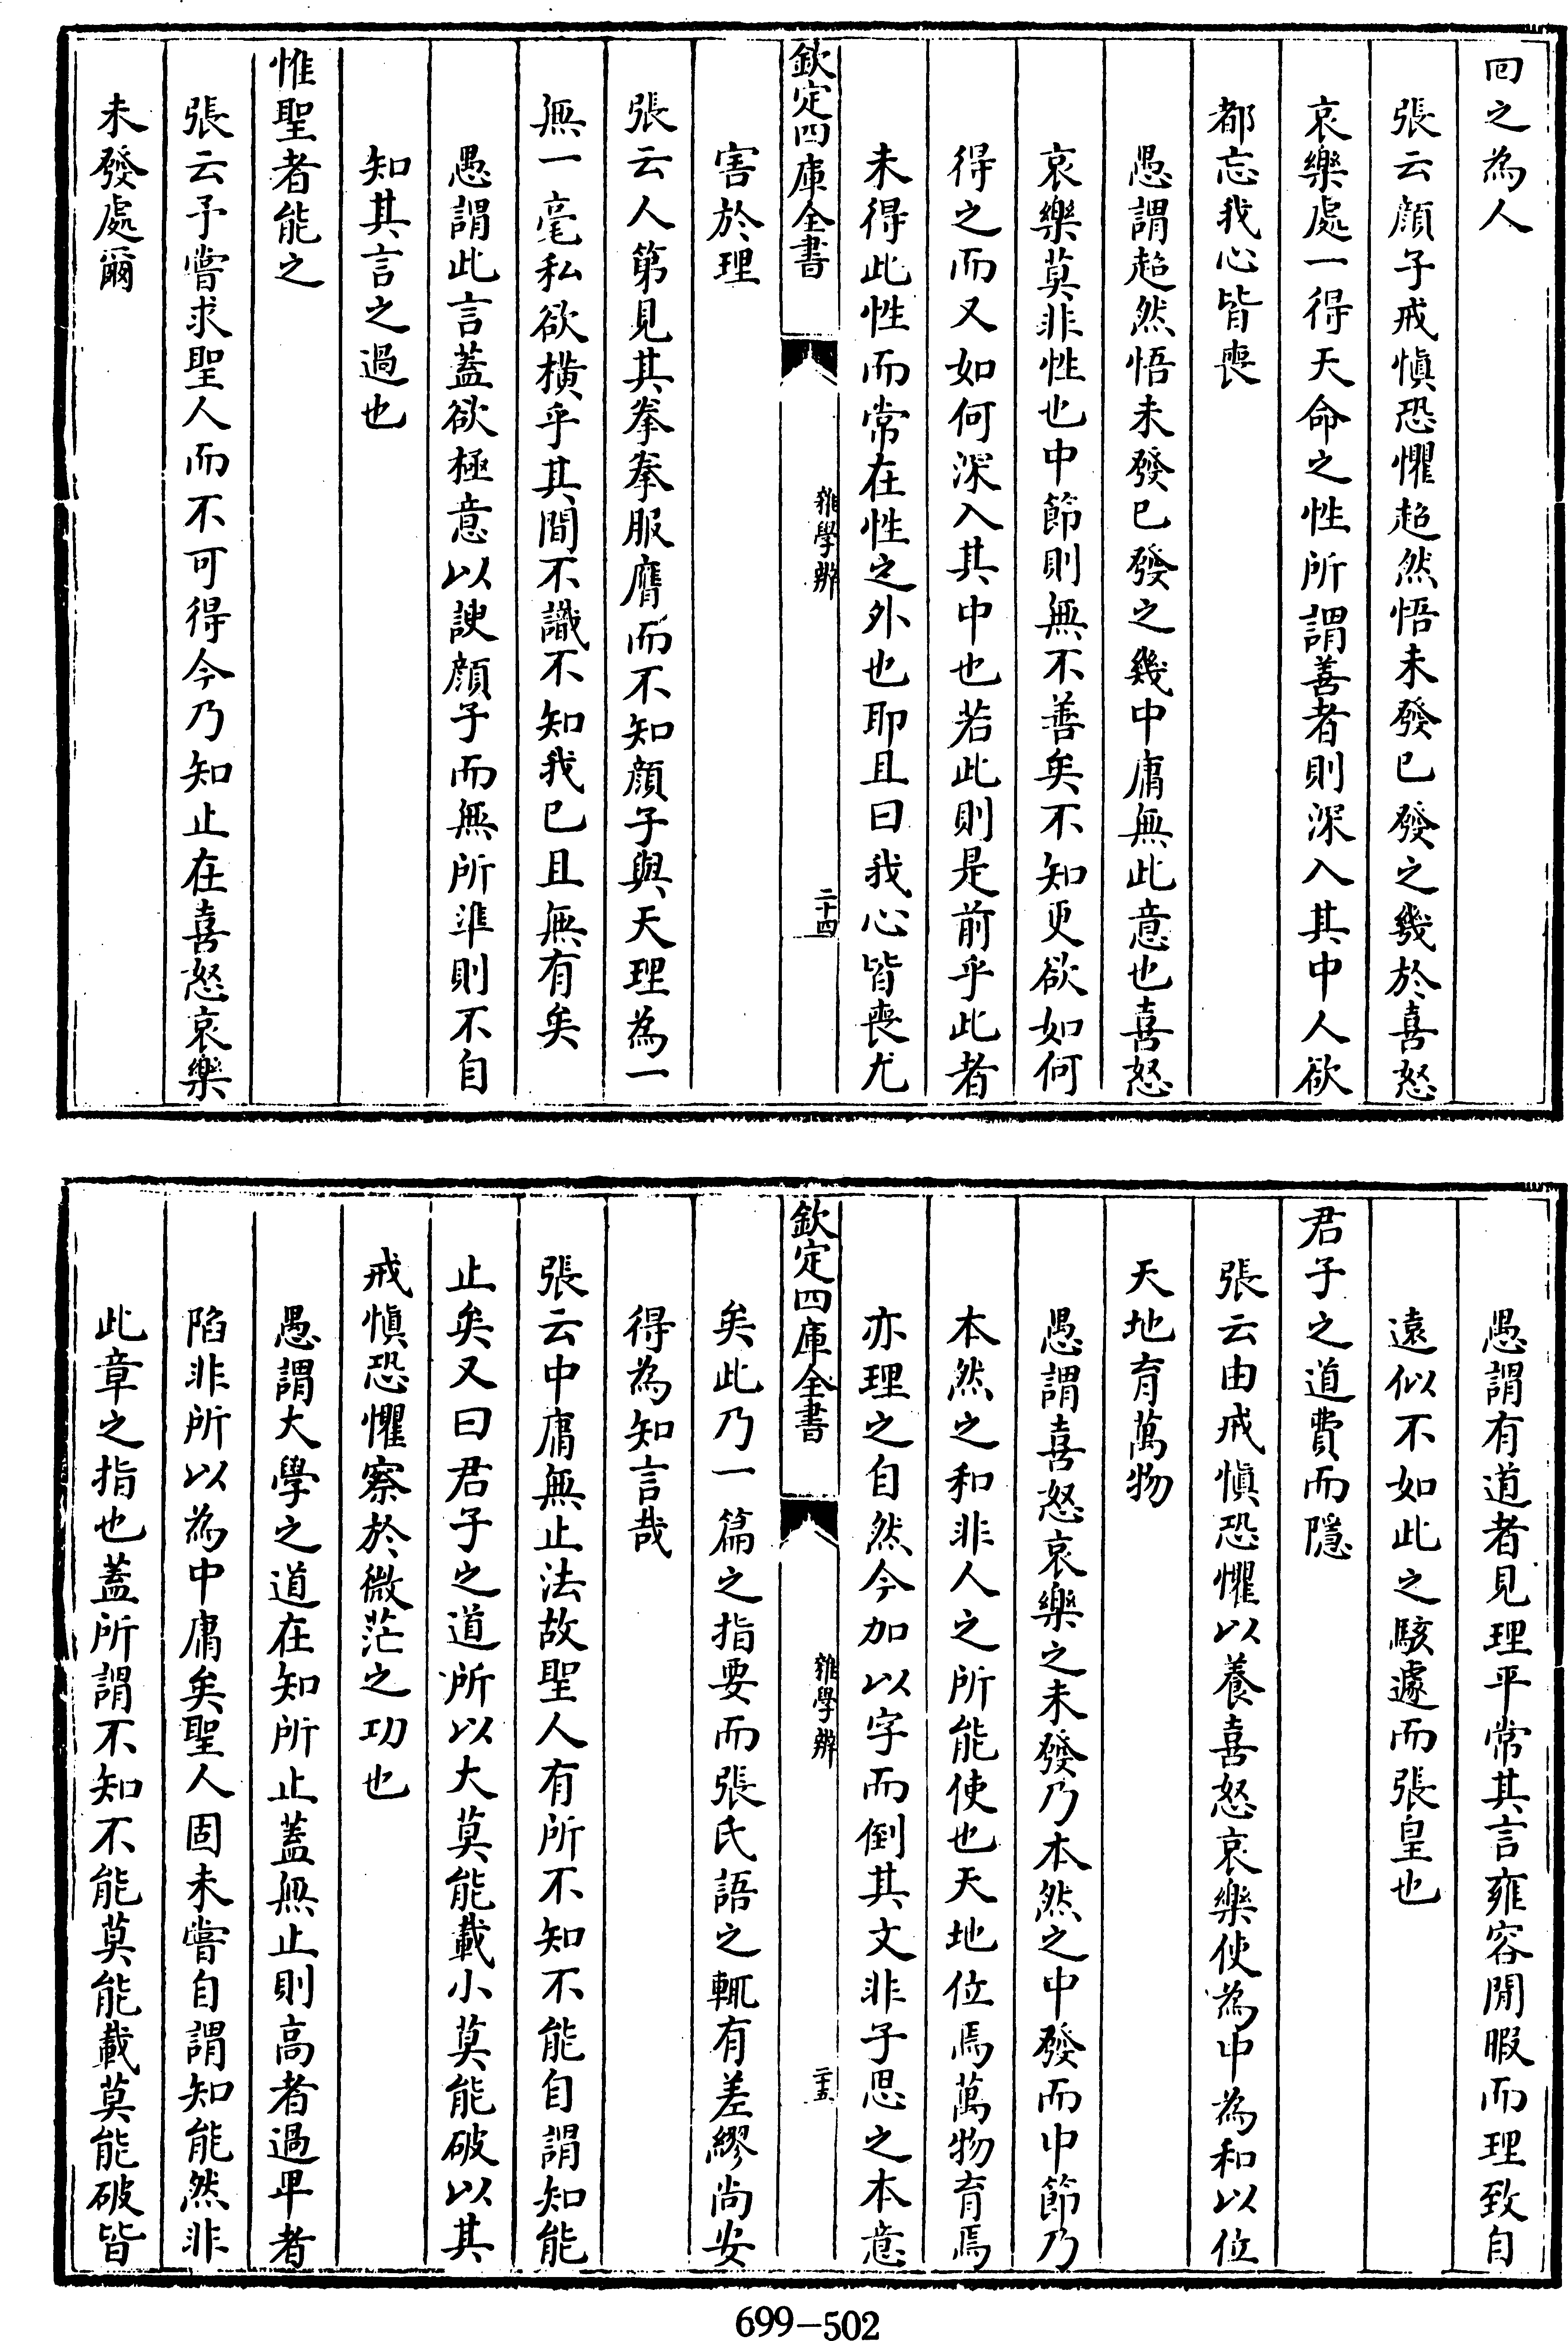 回之為人
張云顔子戒慎恐懼超然悟未發已發之幾於喜怒
哀樂處一得天命之性所謂善者則深入其中人欲
都忘我心皆喪
愚謂超然悟未發已發之幾中庸無此意也喜怒
哀樂莫非性也中節則無不善矣不知更欲如何
得之而又如何深入其中也若此則是前乎此者
未得此性而常在性之外也耶且曰我心皆喪尤
欽定四庫全書
雜學辨
二十四
害於理
張云人第見其拳拳服膺而不知顔子與天理為一
無一毫私欲横乎其間不識不知我已且無有矣
愚謂此言蓋欲極意以諛顔子而無所準則不自
知其言之過也
惟聖者能之
張云予嘗求聖人而不可得今乃知止在喜怒哀樂
未發處爾
愚謂有道者見理平常其言雍容閒暇而理致自
遠似不如此之駭遽而張皇也
君子之道費而隱
張云由戒慎恐懼以養喜怒哀樂使為中為和以位
天地育萬物
愚謂喜怒哀樂之未發乃本然之中發而中節乃
本然之和非人之所能使也天地位焉萬物育焉
亦理之自然今加以字而倒其文非子思之本意
欽定四庫全書
雜學辨
二十五
矣此乃一篇之指要而張氏語之輒有差繆尚安
得為知言哉
張云中庸無止法故聖人有所不知不能自謂知能
止矣又曰君子之道所以大莫能載小莫能破以其
戒慎恐懼察於微茫之功也
愚謂大學之道在知所止蓋無止則高者過卑者
陷非所以為中庸矣聖人固未嘗自謂知能然非
此章之指也蓋所謂不知不能莫能載莫能破皆
699-502